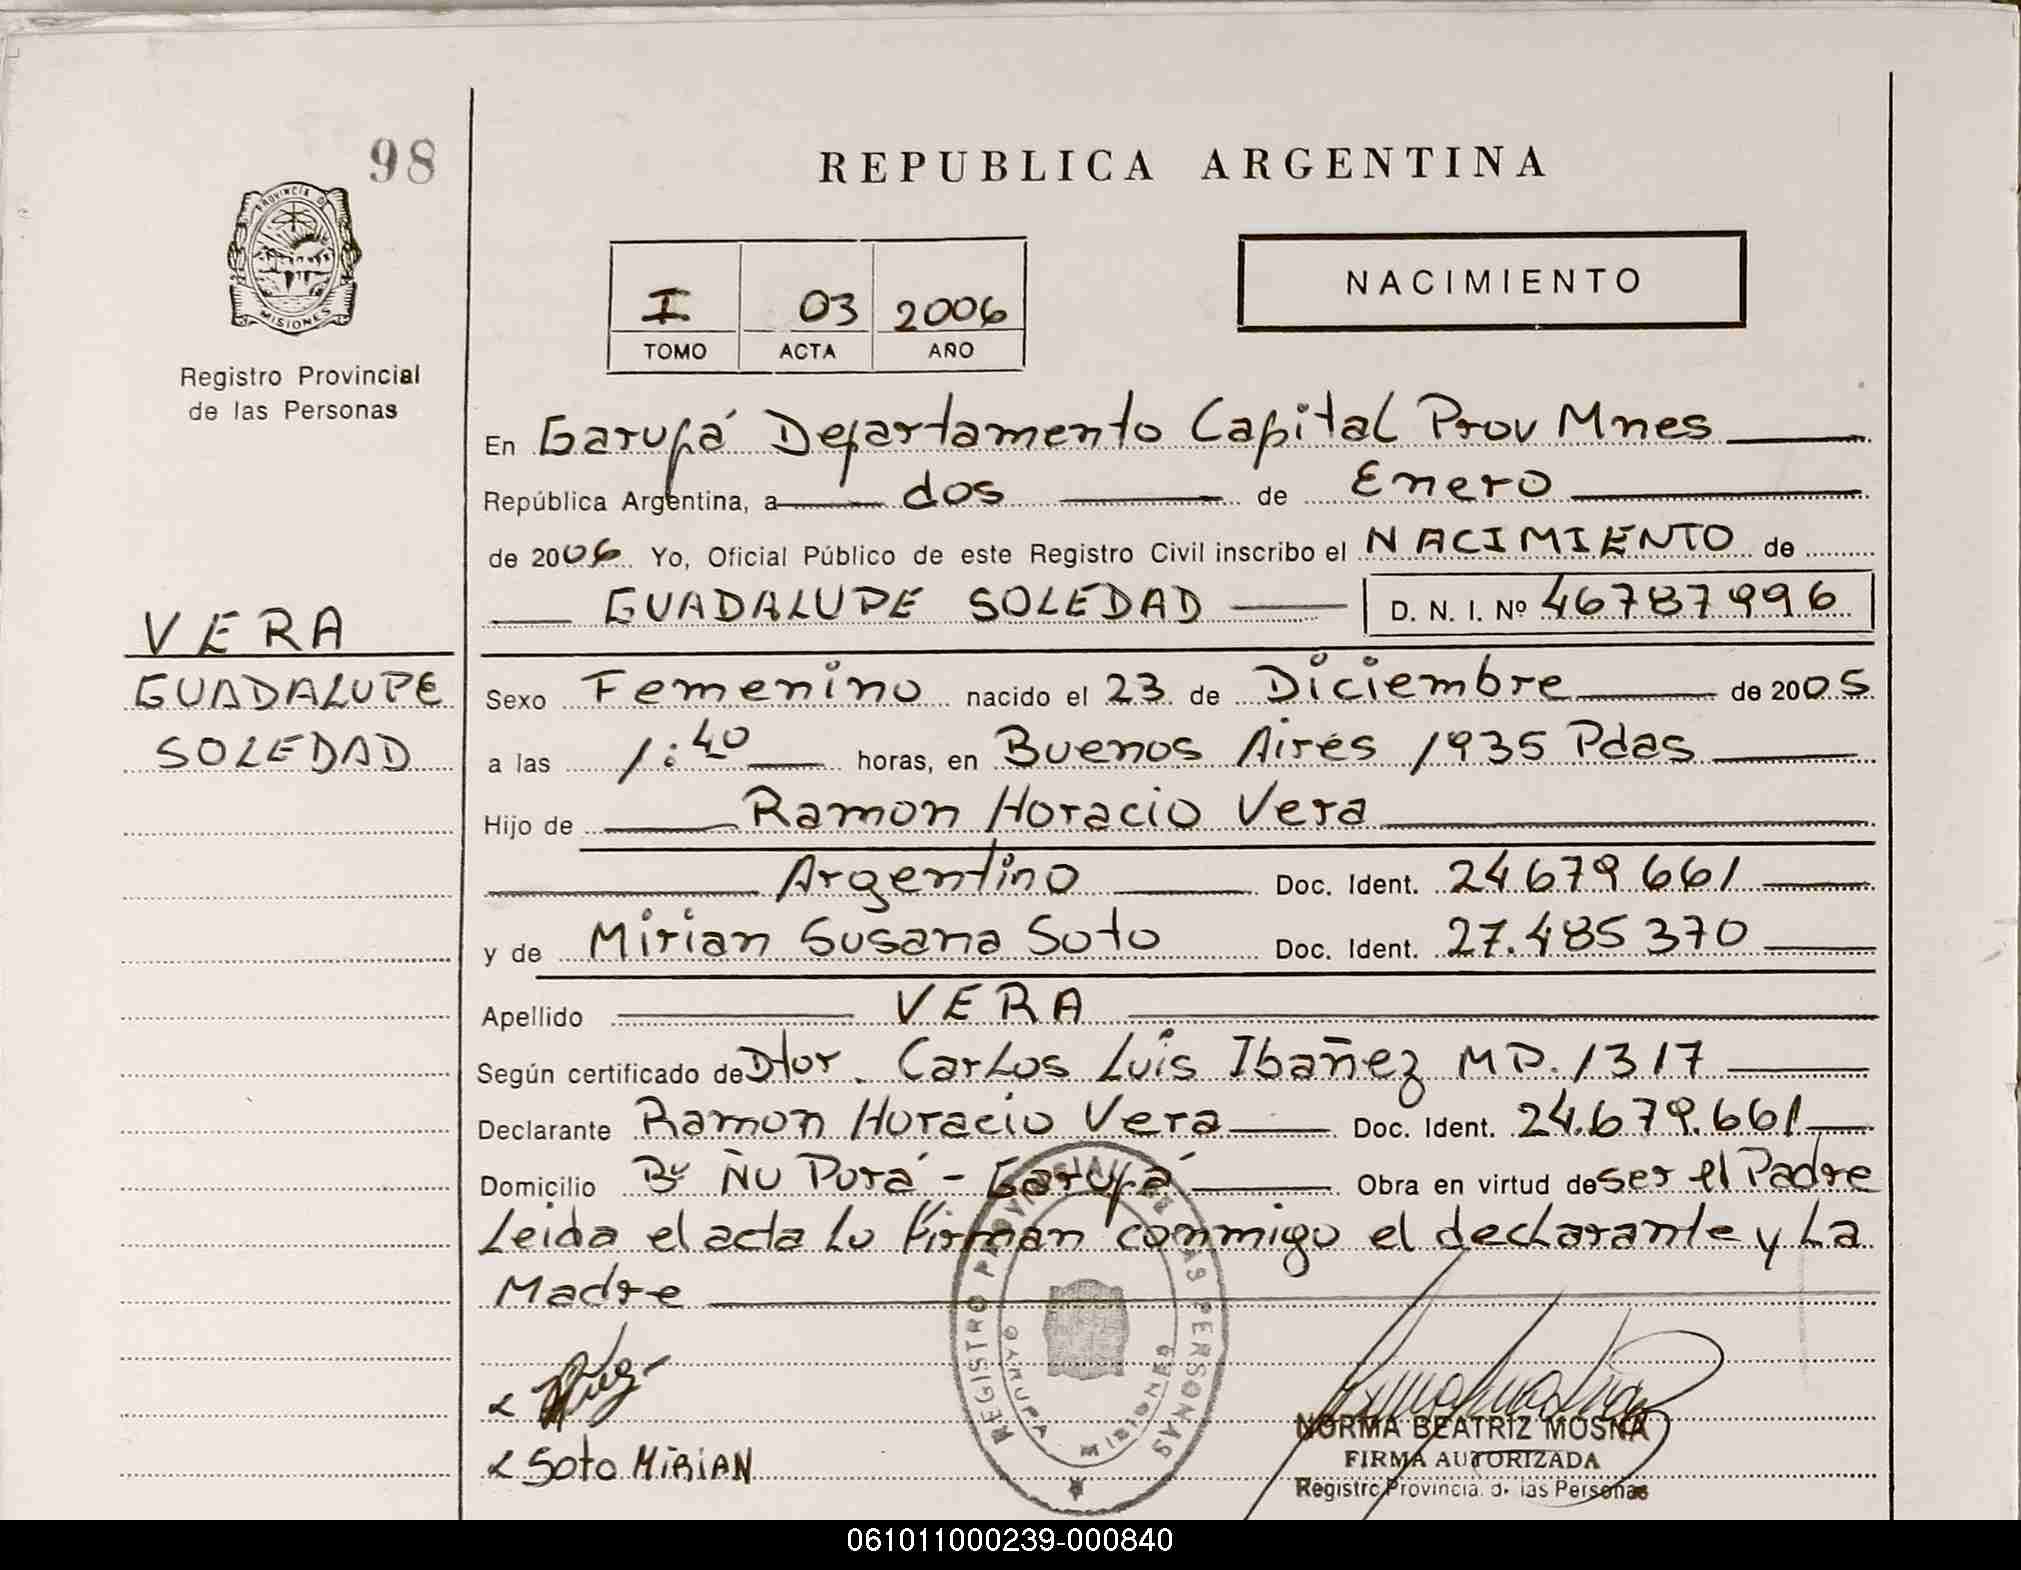 98
REPUBLICA ARGENTINA
PROVINCIA DE
MISIONES
Registro Provincial
de las Personas
I 03 2006
TOMO ACTA AÑO
NACIMIENTO
En Garupá Departamento Capital Prov Mnes
República Argentina, a dos de Enero
de 2006 Yo, Oficial Público de este Registro Civil inscribo el NACIMIENTO de
GUADALUPE SOLEDAD D. N. I. Nº 46787996
VERA
GUADALUPE
SOLEDAD
Sexo Femenino nacido el 23 de Diciembre de 2005
a las 1:40 horas, en Buenos Aires 1935 Pdas
Hijo de Ramon Horacio Vera
Argentino Doc. Ident. 24.679.661
y de Mirian Susana Soto Doc. Ident. 27.485.370
Apellido VERA
Según certificado de Dtor. Carlos Luis Ibañez MP. 1317
Declarante Ramon Horacio Vera Doc. Ident. 24.679.661
Domicilio Bº Ñu Porá - Garupá Obra en virtud de ser el Padre
Leida el acta lo firman conmigo el declarante y La
Madre
REGISTRO PROVINCIAL DE LAS PERSONAS
GARUPA - MISIONES
Soto MiRiAN
NORMA BEATRIZ MOSNA
FIRMA AUTORIZADA
Registro Provincial de las Personas
061011000239-000840